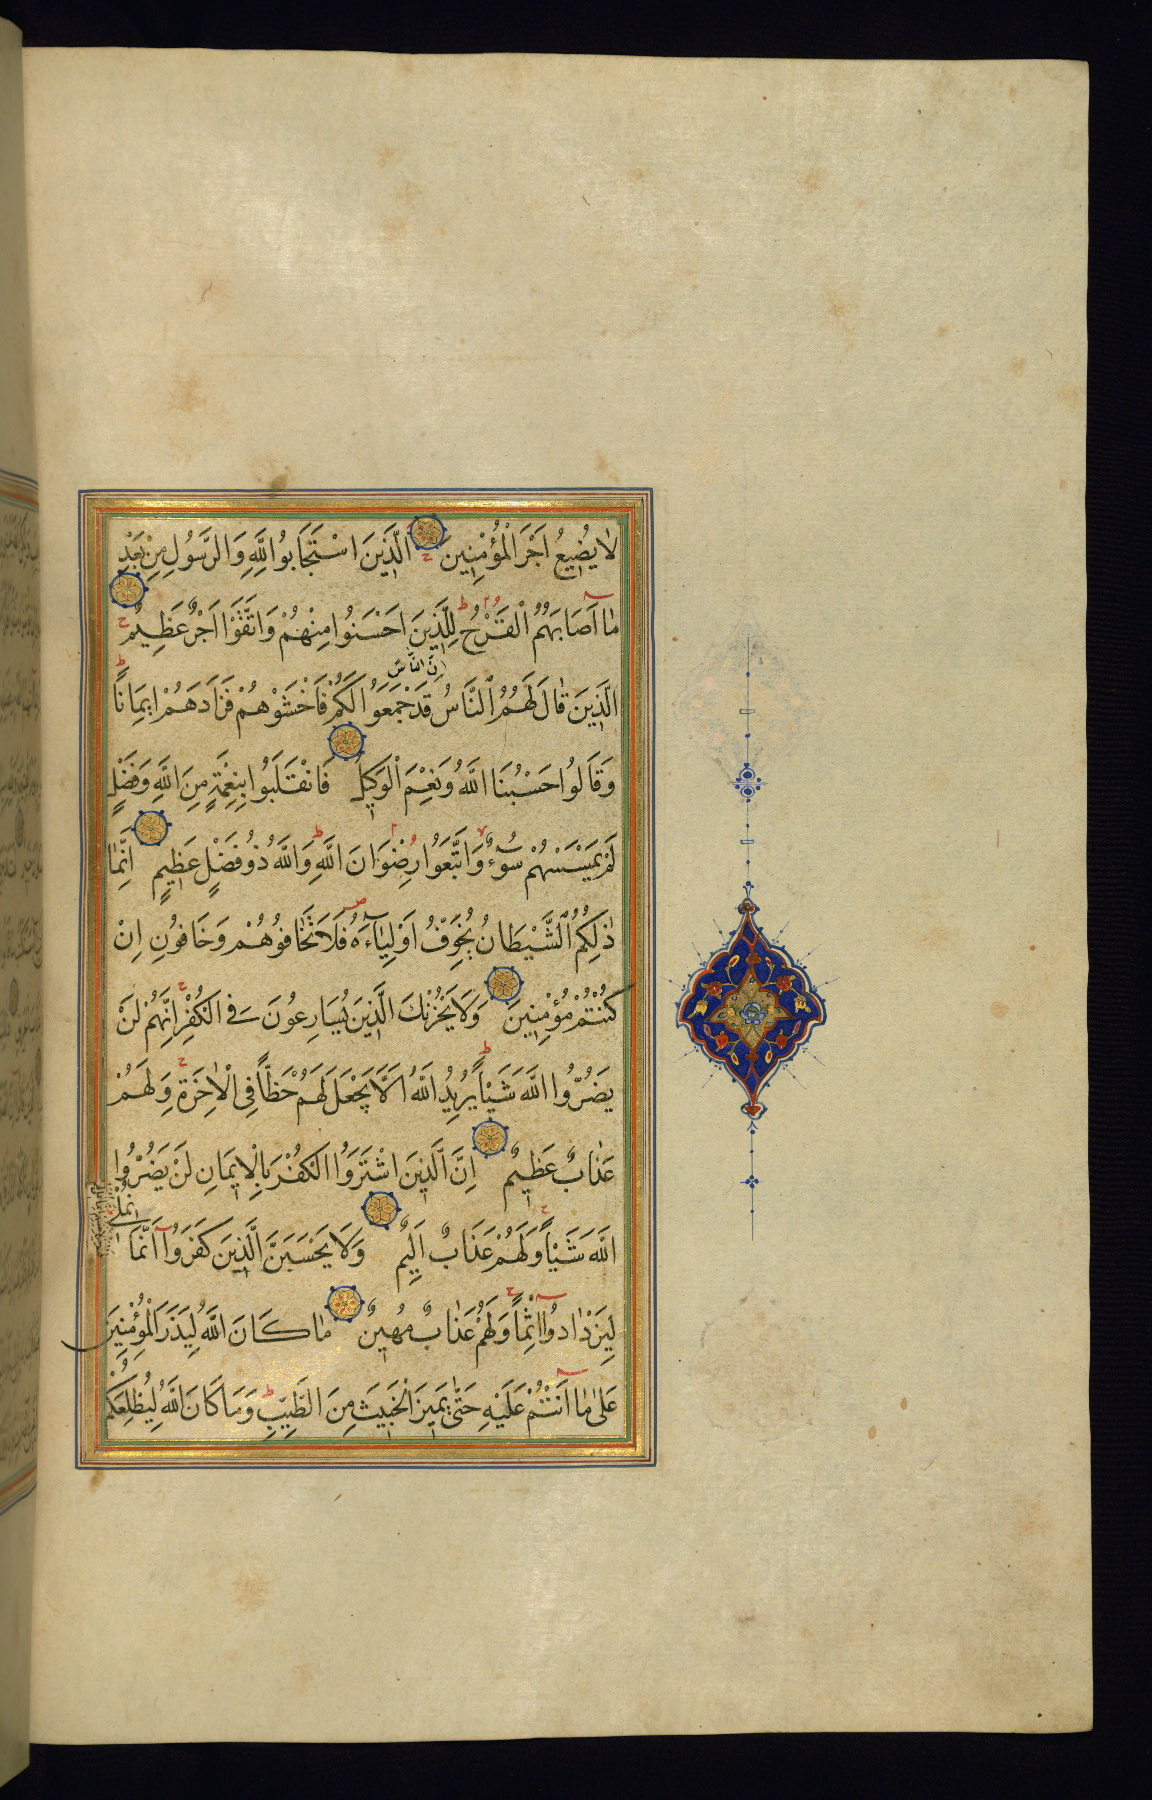 لَا يُضِيعُ اَجْرَ الْمُؤْمِنِينَ اَلَّذِينَ اسْتَجَابُوا لِلَّهِ وَالرَّسُولِ مِنْ بَعْدِ
مَا اَصَابَهُمُ الْقَرْحُ لِلَّذِينَ اَحْسَنُوا مِنْهُمْ وَاتَّقَوْا اَجْرٌ عَظِيمٌ
اِنَّ النَّاسَ
الَّذِينَ قَالَ لَهُمُ النَّاسُ قَدْ جَمَعُوا لَكُمْ فَاخْشَوْهُمْ فَزَادَهُمْ اِيمَانًا
وَقَالُوا حَسْبُنَا اللَّهُ وَنِعْمَ الْوَكِيلُ فَانْقَلَبُوا بِنِعْمَةٍ مِنَ اللَّهِ وَفَضْلٍ
لَمْ يَمْسَسْهُمْ سُوءٌ وَاتَّبَعُوا رِضْوَانَ اللَّهِ وَاللَّهُ ذُو فَضْلٍ عَظِيمٍ اِنَّمَا
ذٰلِكُمُ الشَّيْطَانُ يُخَوِّفُ اَوْلِيَاءَهُ فَلَا تَخَافُوهُمْ وَخَافُونِ اِنْ
كُنْتُمْ مُؤْمِنِينَ وَلَا يَحْزُنْكَ الَّذِينَ يُسَارِعُونَ فِي الْكُفْرِ اِنَّهُمْ لَنْ
يَضُرُّوا اللَّهَ شَيْئًا يُرِيدُ اللَّهُ اَلَّا يَجْعَلَ لَهُمْ حَظًّا فِي الْاٰخِرَةِ وَلَهُمْ
عَذَابٌ عَظِيمٌ اِنَّ الَّذِينَ اشْتَرَوُا الْكُفْرَ بِالْاِيمَانِ لَنْ يَضُرُّوا
اللَّهَ شَيْئًا وَلَهُمْ عَذَابٌ اَلِيمٌ وَلَا يَحْسَبَنَّ الَّذِينَ كَفَرُوا اَنَّمَا
لِيَزْدَادُوا اِثْمًا وَلَهُمْ عَذَابٌ مُهِينٌ مَا كَانَ اللَّهُ لِيَذَرَ الْمُؤْمِنِينَ
عَلَىٰ مَا اَنْتُمْ عَلَيْهِ حَتَّىٰ يَمِيزَ الْخَبِيثَ مِنَ الطَّيِّبِ وَمَا كَانَ اللَّهُ لِيُطْلِعَكُمْ